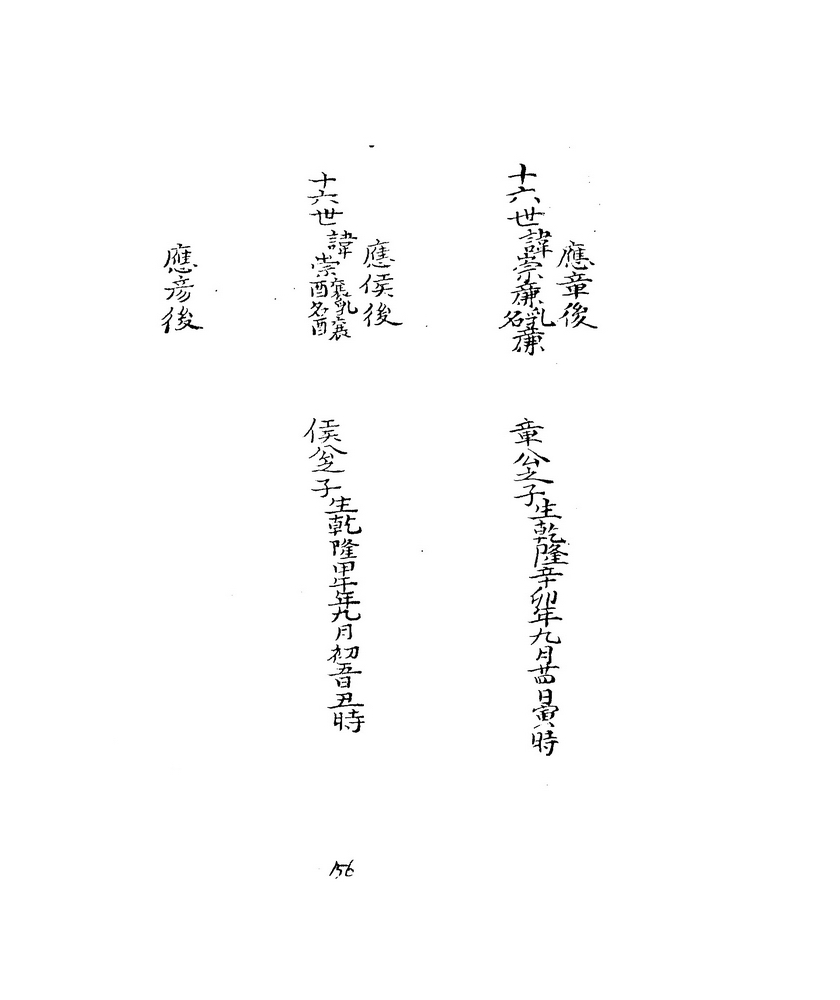 應章後
十六世諱崇廉乳名廉
章公之子生乾隆辛卯年九月廿四日寅時
應侯後
十六世諱崇釀乳名釀
侯公之子生乾隆甲午年九月初五日丑時
應彦後
156